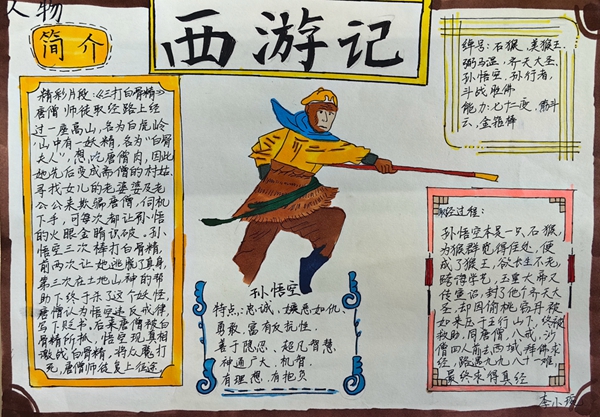 人物
简介
西游记
绰号：石猴、美猴王、
弼马温、齐天大圣、
孙悟空、孙行者、
斗战胜佛
能力：七十二变、筋斗
云、金箍棒
精彩片段：《三打白骨精》
唐僧师徒取经路上经
过一座高山，名为白虎岭
山中有一妖精，名为"白骨
夫人"，想吃唐僧肉，因此
她先后变成斋僧的村姑、
寻找女儿的老婆婆及老
公公来欺骗唐僧，伺机
下手，可每次都让孙悟
的火眼金睛识破。孙
悟空三次棒打白骨精，
前两次让她逃脱了真身，
第三次在土地山神的帮
助下终于杀了这个妖怪，
唐僧认为悟空违反戒律，
写下贬书，后来唐僧被白
骨精所执，悟空现真相
激战白骨精，将众魔打
死，唐僧师徒复上征途
孙悟空
特点：忠诚、嫉恶如仇、
勇敢、富有反抗性、
善于隐忍、超凡智慧、
神通广大、机智、
有理想、有抱负
取经过程：
孙悟空本是一只石猴
为猴群觅得住处，便
成了猴王，欲求长生不老，
学艺，玉皇大帝又
传重诏，封了他个齐天大
圣，却因偷桃窃丹被
如来压于五行山下，终被
救助，同唐僧、八戒、沙
僧四人前去西域，拜佛求
经，路遇九九八十一难，
最终求得真经
李小